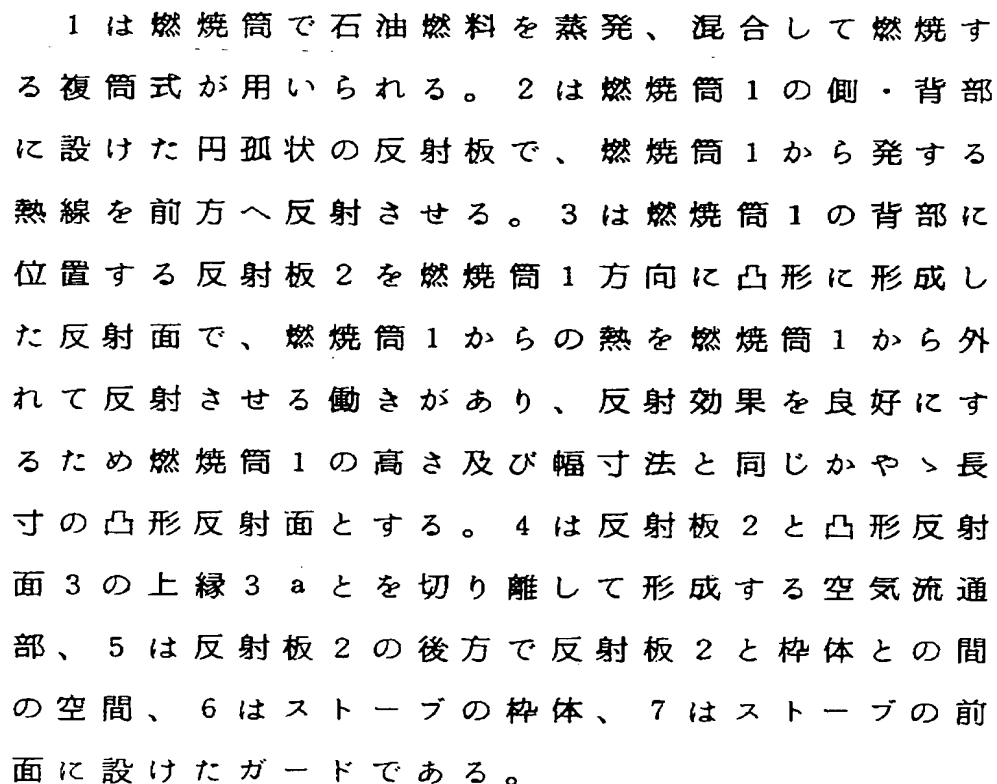 1は燃焼筒で石油燃料を蒸発、混合して燃焼す
る複筒式が用いられる。2は燃焼筒1の側・背部
に設けた円弧状の反射板で、燃焼筒1から発する
熱線を前方へ反射させる。3は燃焼筒1の背部に
位置する反射板2を燃焼筒1方向に凸形に形成し
た反射面で、燃焼筒1からの熱を燃焼筒1から外
れて反射させる働きがあり、反射効果を良好にす
るため燃焼筒1の高さ及び幅寸法と同じかやゝ長
寸の凸形反射面とする。4は反射板2と凸形反射
面3の上縁3aとを切り離して形成する空気流通
部、5は反射板2の後方で反射板2と枠体との間
の空間、6はストーブの枠体、7はストーブの前
面に設けたガードである。